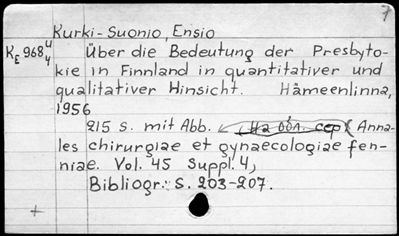 Kurki-Suonio, Ensio
KE 968 4/4 Über die Bedeutung der Presbyto-
kie in Finnland in quantitativer und
qualitativer Hinsicht. Hämeenlinna,
1956
215 s. mit Abb. (На обл. сер) (Anna-
les chirurgiae et gynaecologiae fen-
niae. Vol. 45 Suppl. 4)
Bibliogr.: S. 203-207.